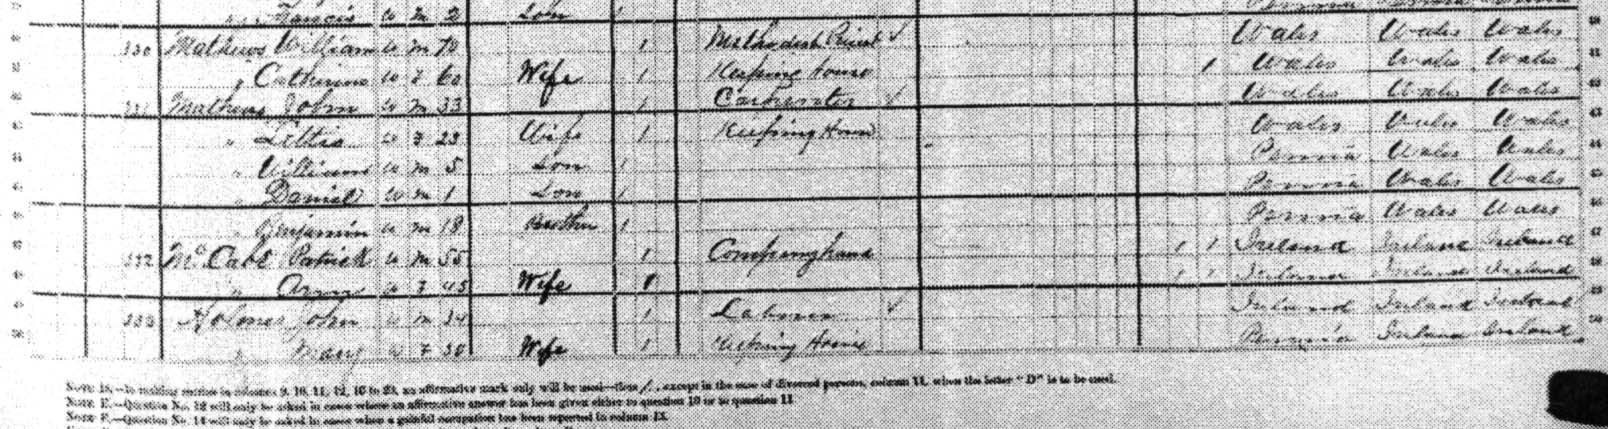 " Francis W M 2 Son 1
330 Mathews William W M 70 1 Methodist Priest ✓ Wales Wales Wales
" Catherine W F 60 Wife 1 Keeping House 1 Wales Wales Wales
331 Mathews John W M 33 1 Carpenter ✓ Wales Wales Wales
" Lettie W F 23 Wife 1 Keeping House Wales Wales Wales
" William W M 5 Son 1 Penna Wales Wales
" Daniel W M 1 Son 1 Penna Wales Wales
" Benjamin W M 18 Brother 1 Penna Wales Wales
332 McCabe Patrick W M 55 1 Company hand 1 1 Ireland Ireland Ireland
" Ann W F 45 Wife 1 1 1 Ireland Ireland Ireland
333 Holmes John W M 34 1 Laborer ✓ Ireland Ireland Ireland
" Mary W F 30 Wife 1 Keeping House Penna Ireland Ireland
NOTE D.—In making entries in columns 9, 10, 11, 12, 16 to 23, an affirmative mark only will be used—thus /, except in the case of divorced persons, column 11, when the letter "D" is to be used.
NOTE E.—Question No. 12 will only be asked in cases where an affirmative answer has been given either to question 10 or to question 11
NOTE F.—Question No. 14 will only be asked in cases when a gainful occupation has been reported in column 13.